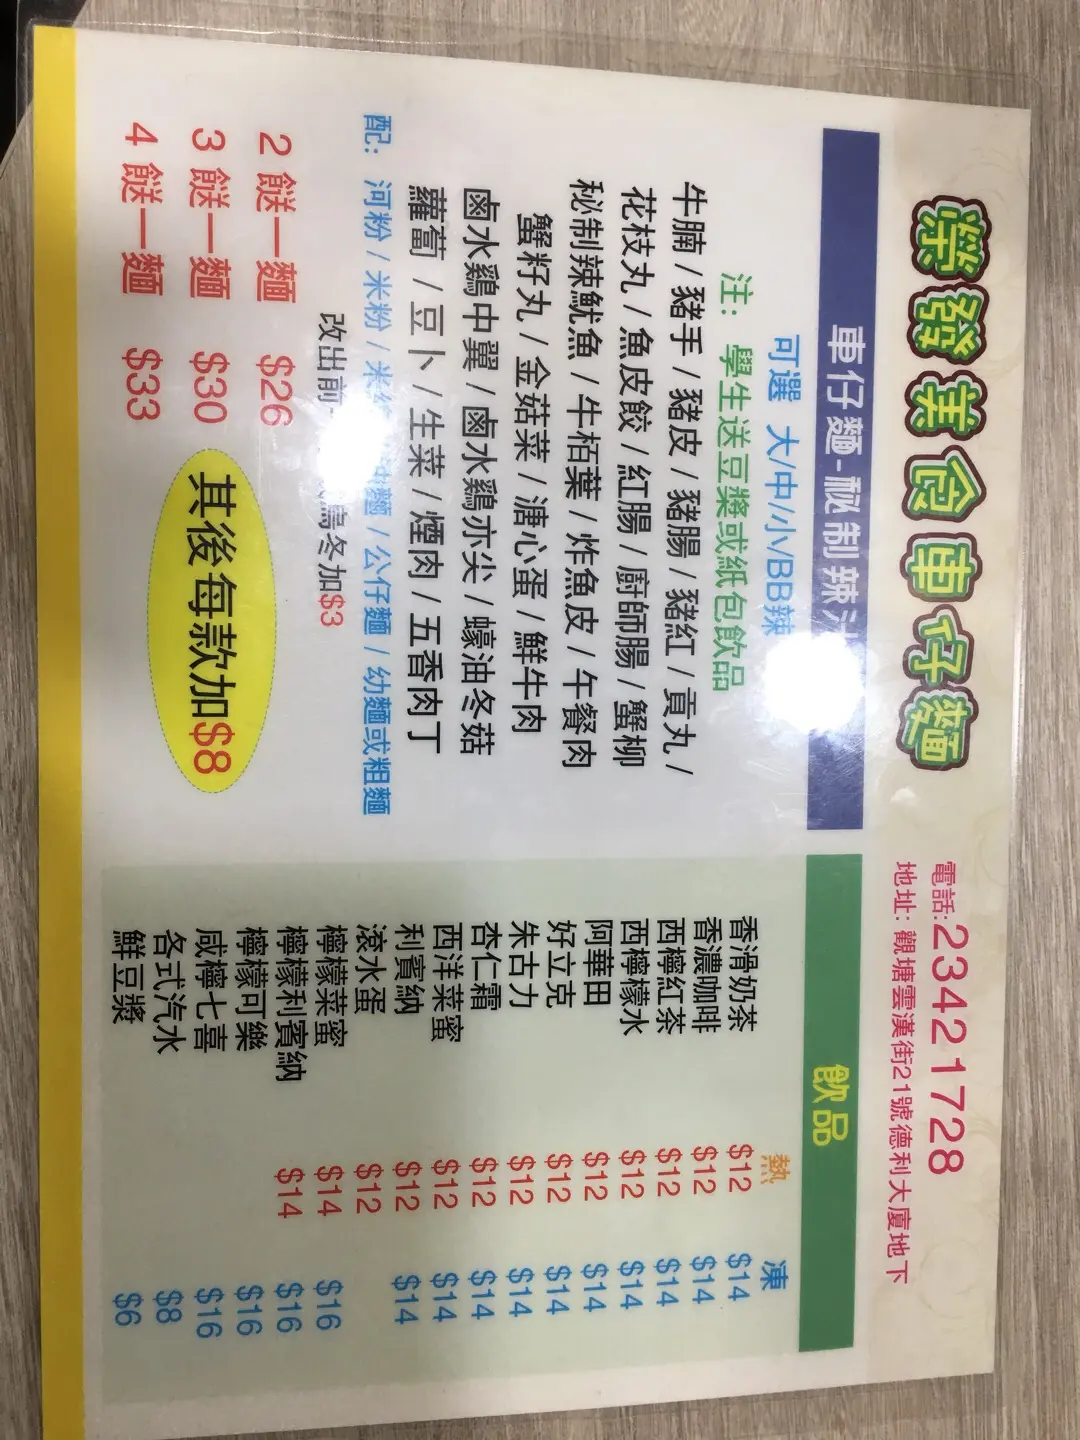 榮發美食車仔麵
電話:2342 1728
地址: 觀塘雲漢街21號德利大廈地下
車仔麵-秘制辣汁
可選 大/中/小/BB辣
注: 學生送豆漿或紙包飲品
牛腩 / 豬手 / 豬皮 / 豬腸 / 豬紅 / 貢丸 /
花枝丸 / 魚皮餃 / 紅腸 / 廚師腸 / 蟹柳
秘制辣魷魚 / 牛栢葉 / 炸魚皮 / 午餐肉
蟹籽丸 / 金菇菜 / 溏心蛋 / 鮮牛肉
鹵水鷄中翼 / 鹵水鷄亦尖 / 蠔油冬菇
蘿蔔 / 豆卜 / 生菜 / 煙肉 / 五香肉丁
配: 河粉 / 米粉 / 米線 / 油麵 / 公仔麵 / 幼麵或粗麵
改出前 烏冬加$3
2 餸一麵 $26
3 餸一麵 $30
4 餸一麵 $33
其後每款加$8
飲品
熱 凍
香滑奶茶 $12 $14
香濃咖啡 $12 $14
西檸紅茶 $12 $14
西檸檬水 $12 $14
阿華田 $12 $14
好立克 $12 $14
朱古力 $12 $14
杏仁霜 $12 $14
西洋菜蜜 $12 $14
利賓納 $12 $14
滾水蛋 $12
檸檬菜蜜 $14 $16
檸檬利賓納 $14 $16
檸檬可樂 $16
咸檸七喜 $16
各式汽水 $8
鮮豆漿 $6